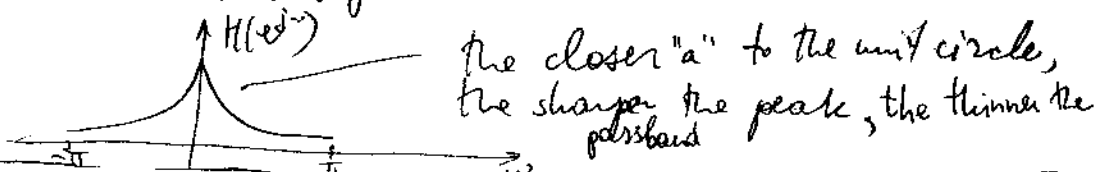 H(e^jω)
the closer "a" to the unit circle,
the sharper the peak, the thinner the
passband
-π
π
ω